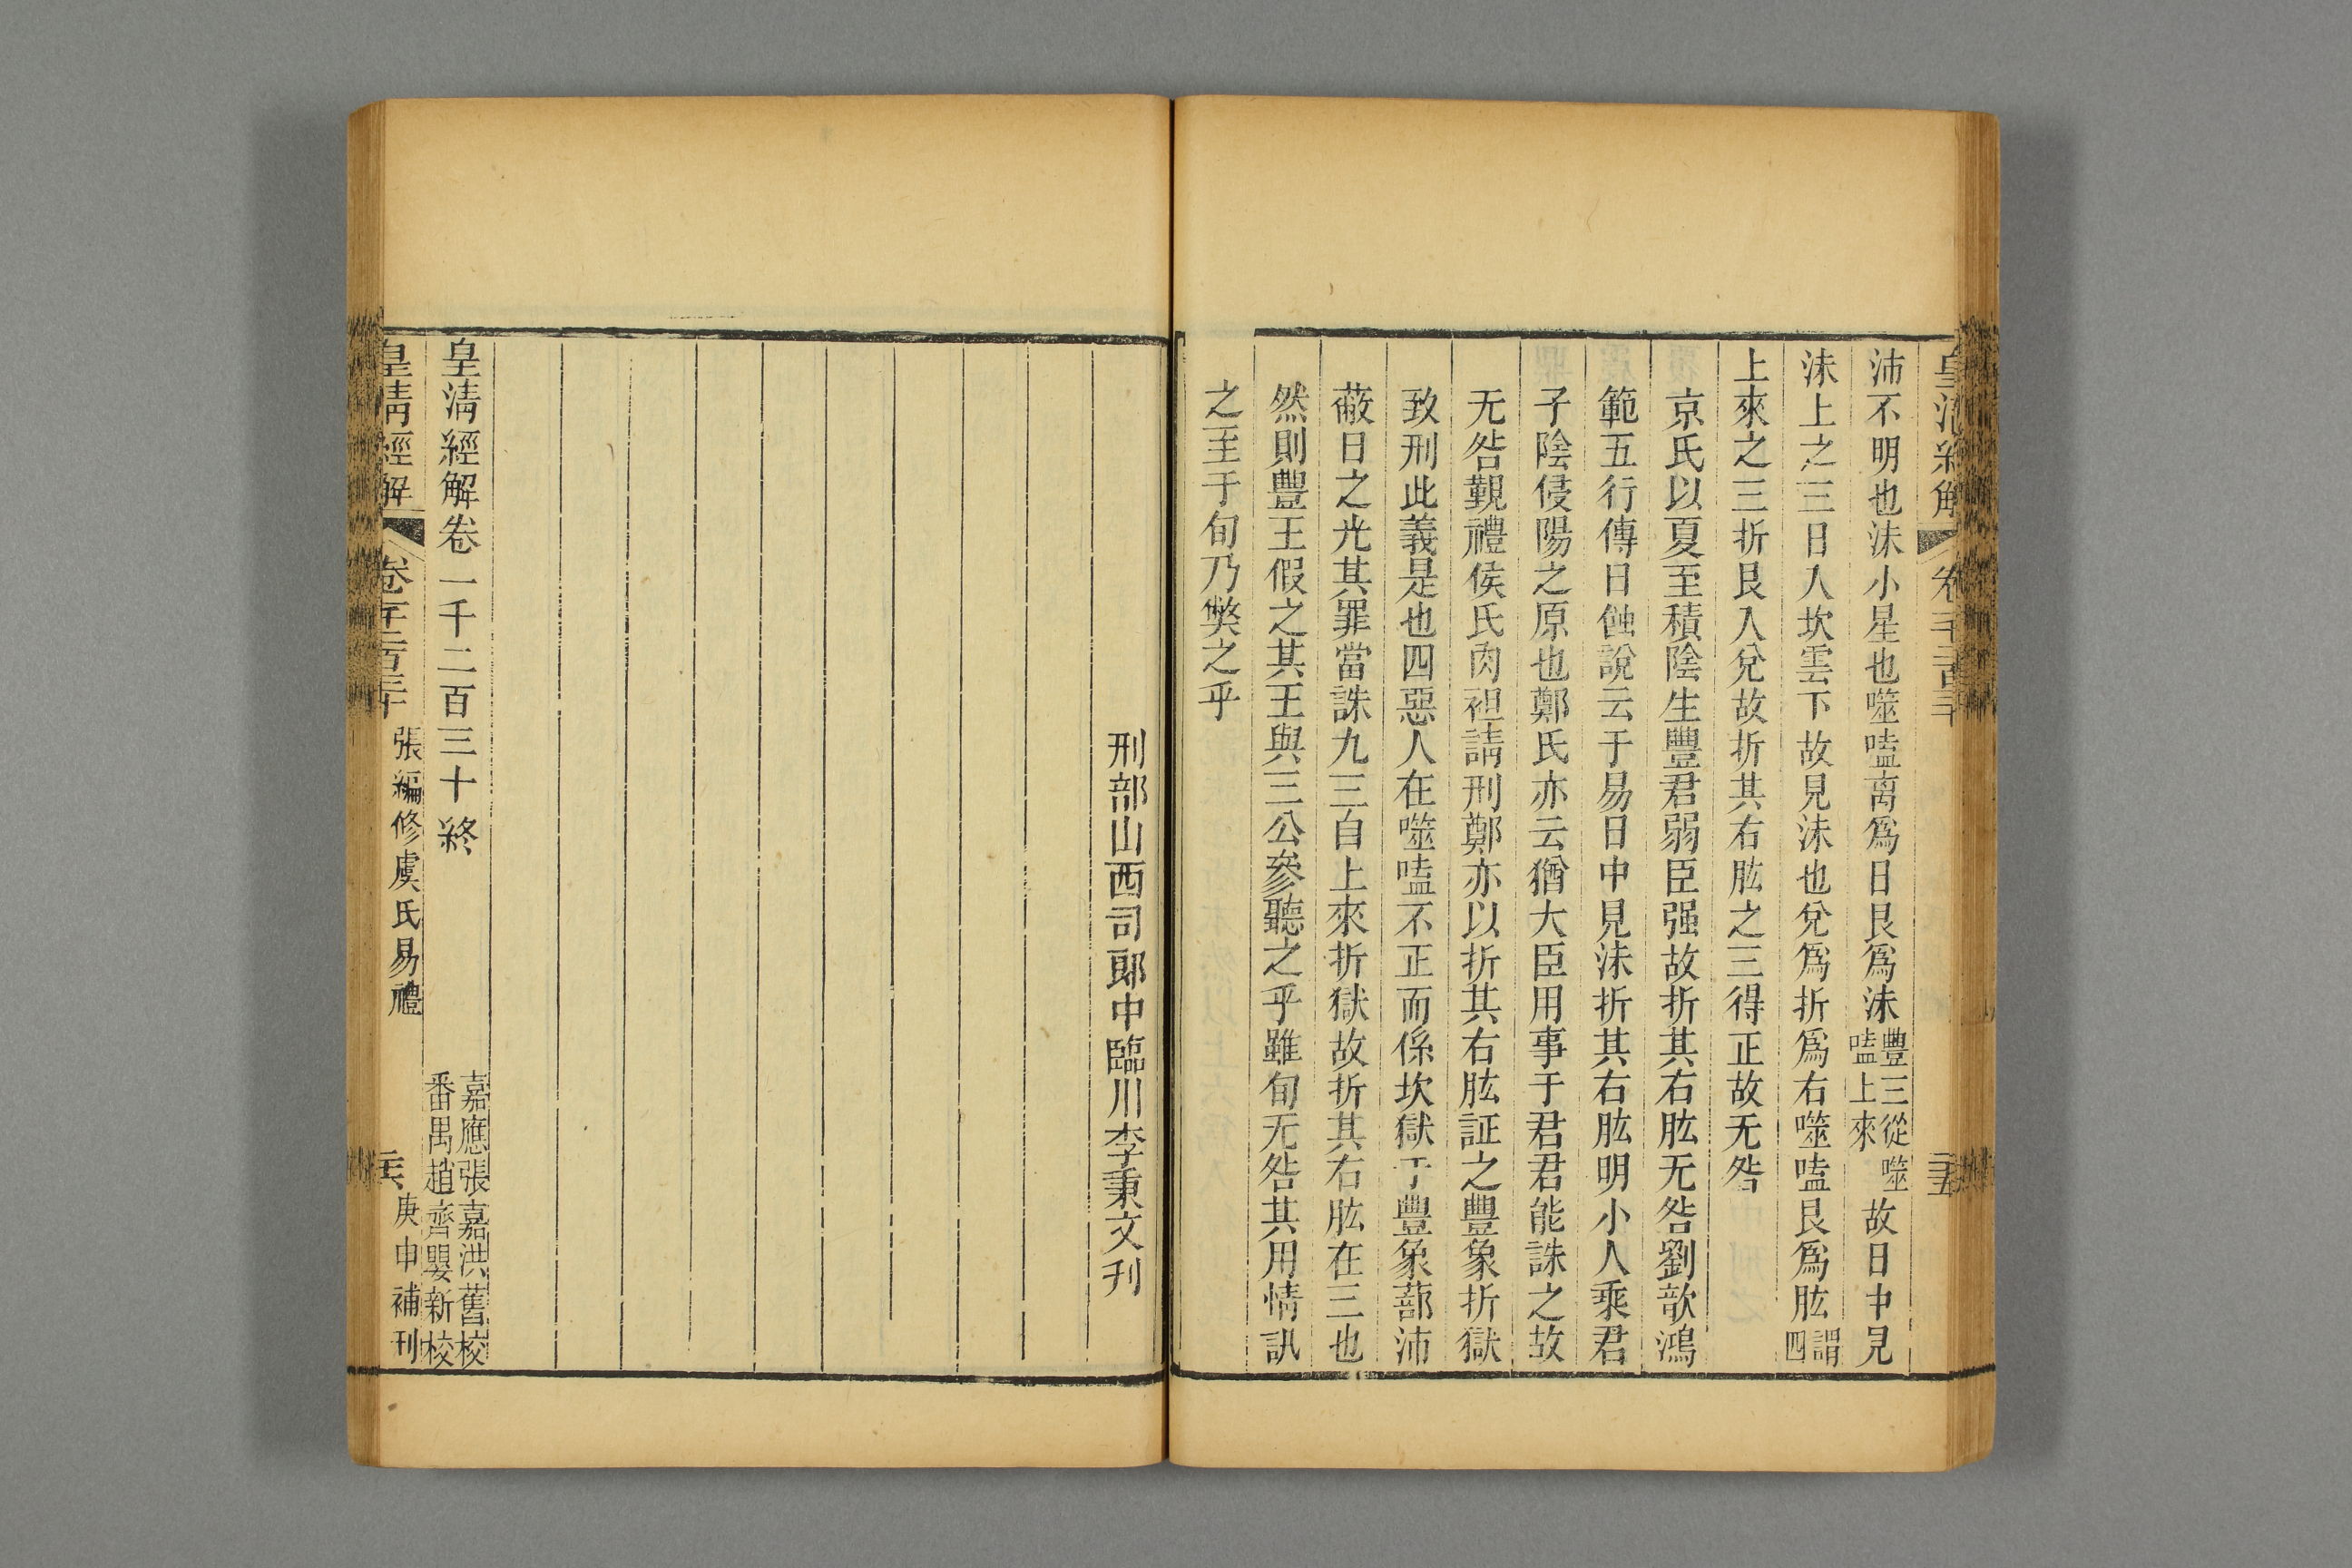 皇清經解 卷一千二百三十 二十五
沛不明也沬小星也噬嗑离爲日艮爲沬豐三從噬嗑上來故日中見
沬上之三日入坎雲下故見沬也兌爲折爲右噬嗑艮爲肱謂四
上來之三折艮入兌故折其右肱之三得正故无咎
京氏以夏至積陰生豐君弱臣强故折其右肱无咎劉歆鴻
範五行傳日蝕說云于易日中見沬折其右肱明小人乘君
子陰侵陽之原也鄭氏亦云猶大臣用事于君君能誅之故
无咎覲禮侯氏肉袒請刑鄭亦以折其右肱証之豐象折獄
致刑此義是也四惡人在噬嗑不正而係坎獄于豐象蔀沛
蔽日之光其罪當誅九三自上來折獄故折其右肱在三也
然則豐王假之其王與三公參聽之乎雖旬无咎其用情訊
之至于旬乃獘之乎
刑部山西司郎中臨川李秉文刊
皇清經解卷一千二百三十終
嘉應張嘉洪舊校
番禺趙齊嬰新校
皇清經解 卷一千二百三十 張編修虞氏易禮 二十六 庚申補刊